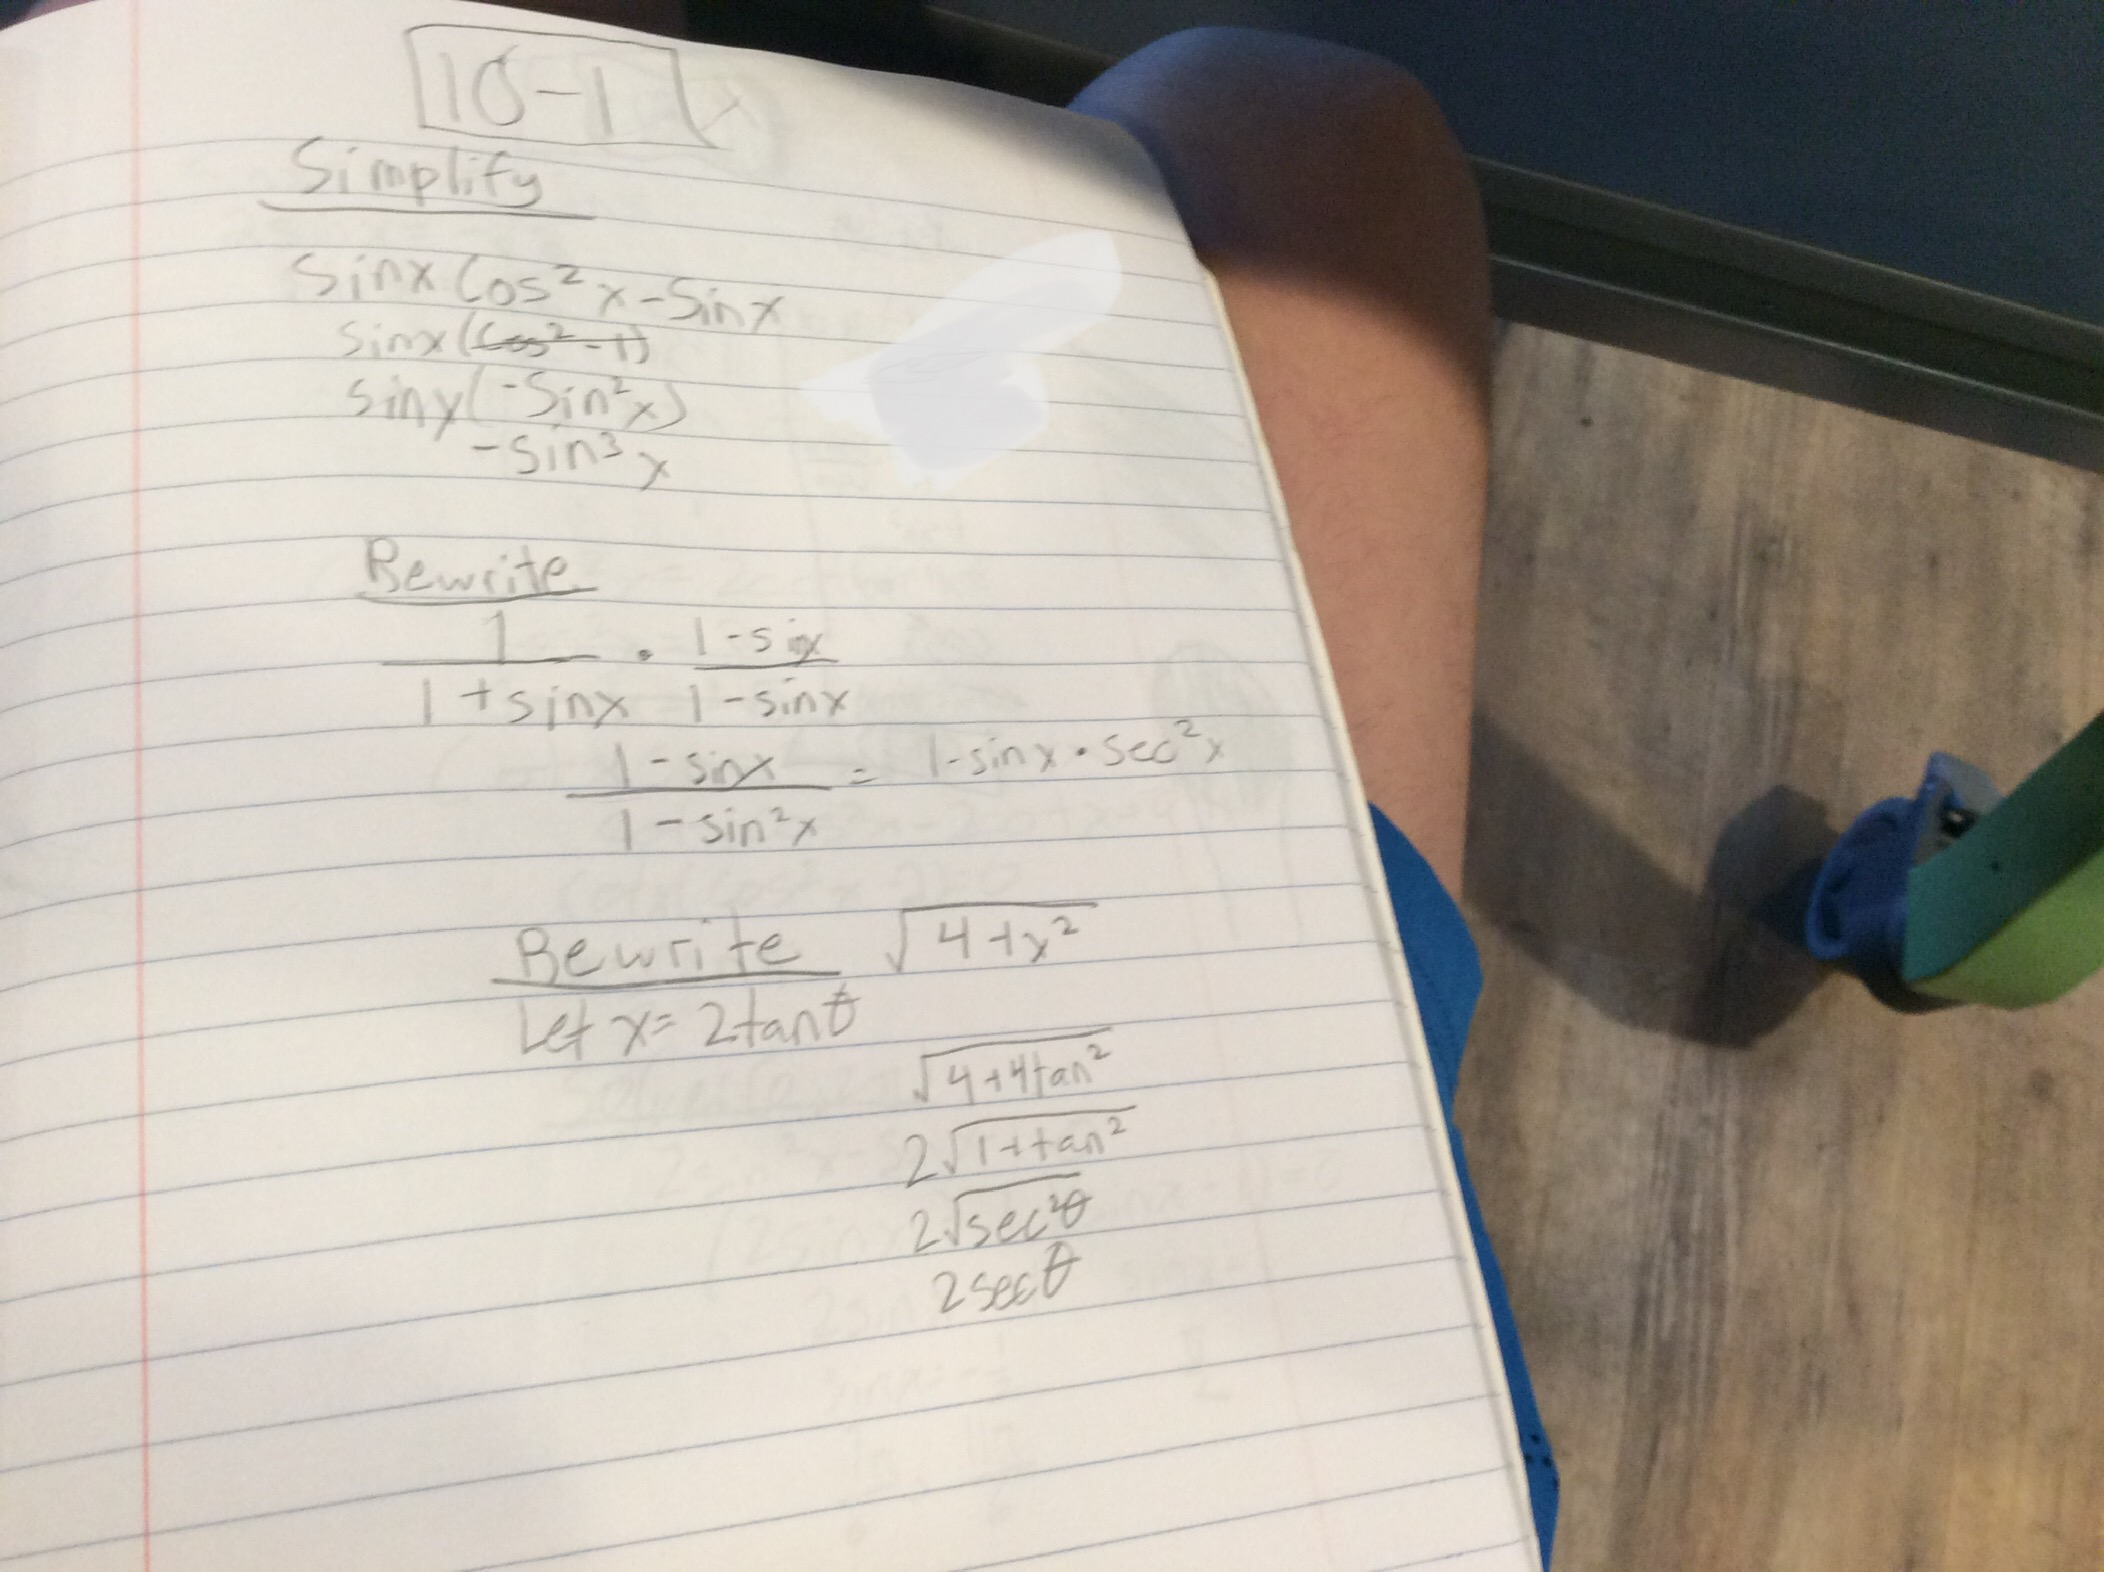 10-1
Simplify
sinx cos²x-sinx
sinx(cos²-1)
siny(-sin²x)
-sin³x
Rewrite
1/1+sinx · 1-sinx/1-sinx
1-sinx/1-sin²x = 1-sinx·sec²x
Rewrite √4+x²
Let x=2tanθ
√4+4tan²
2√1+tan²
2√sec²θ
2secθ